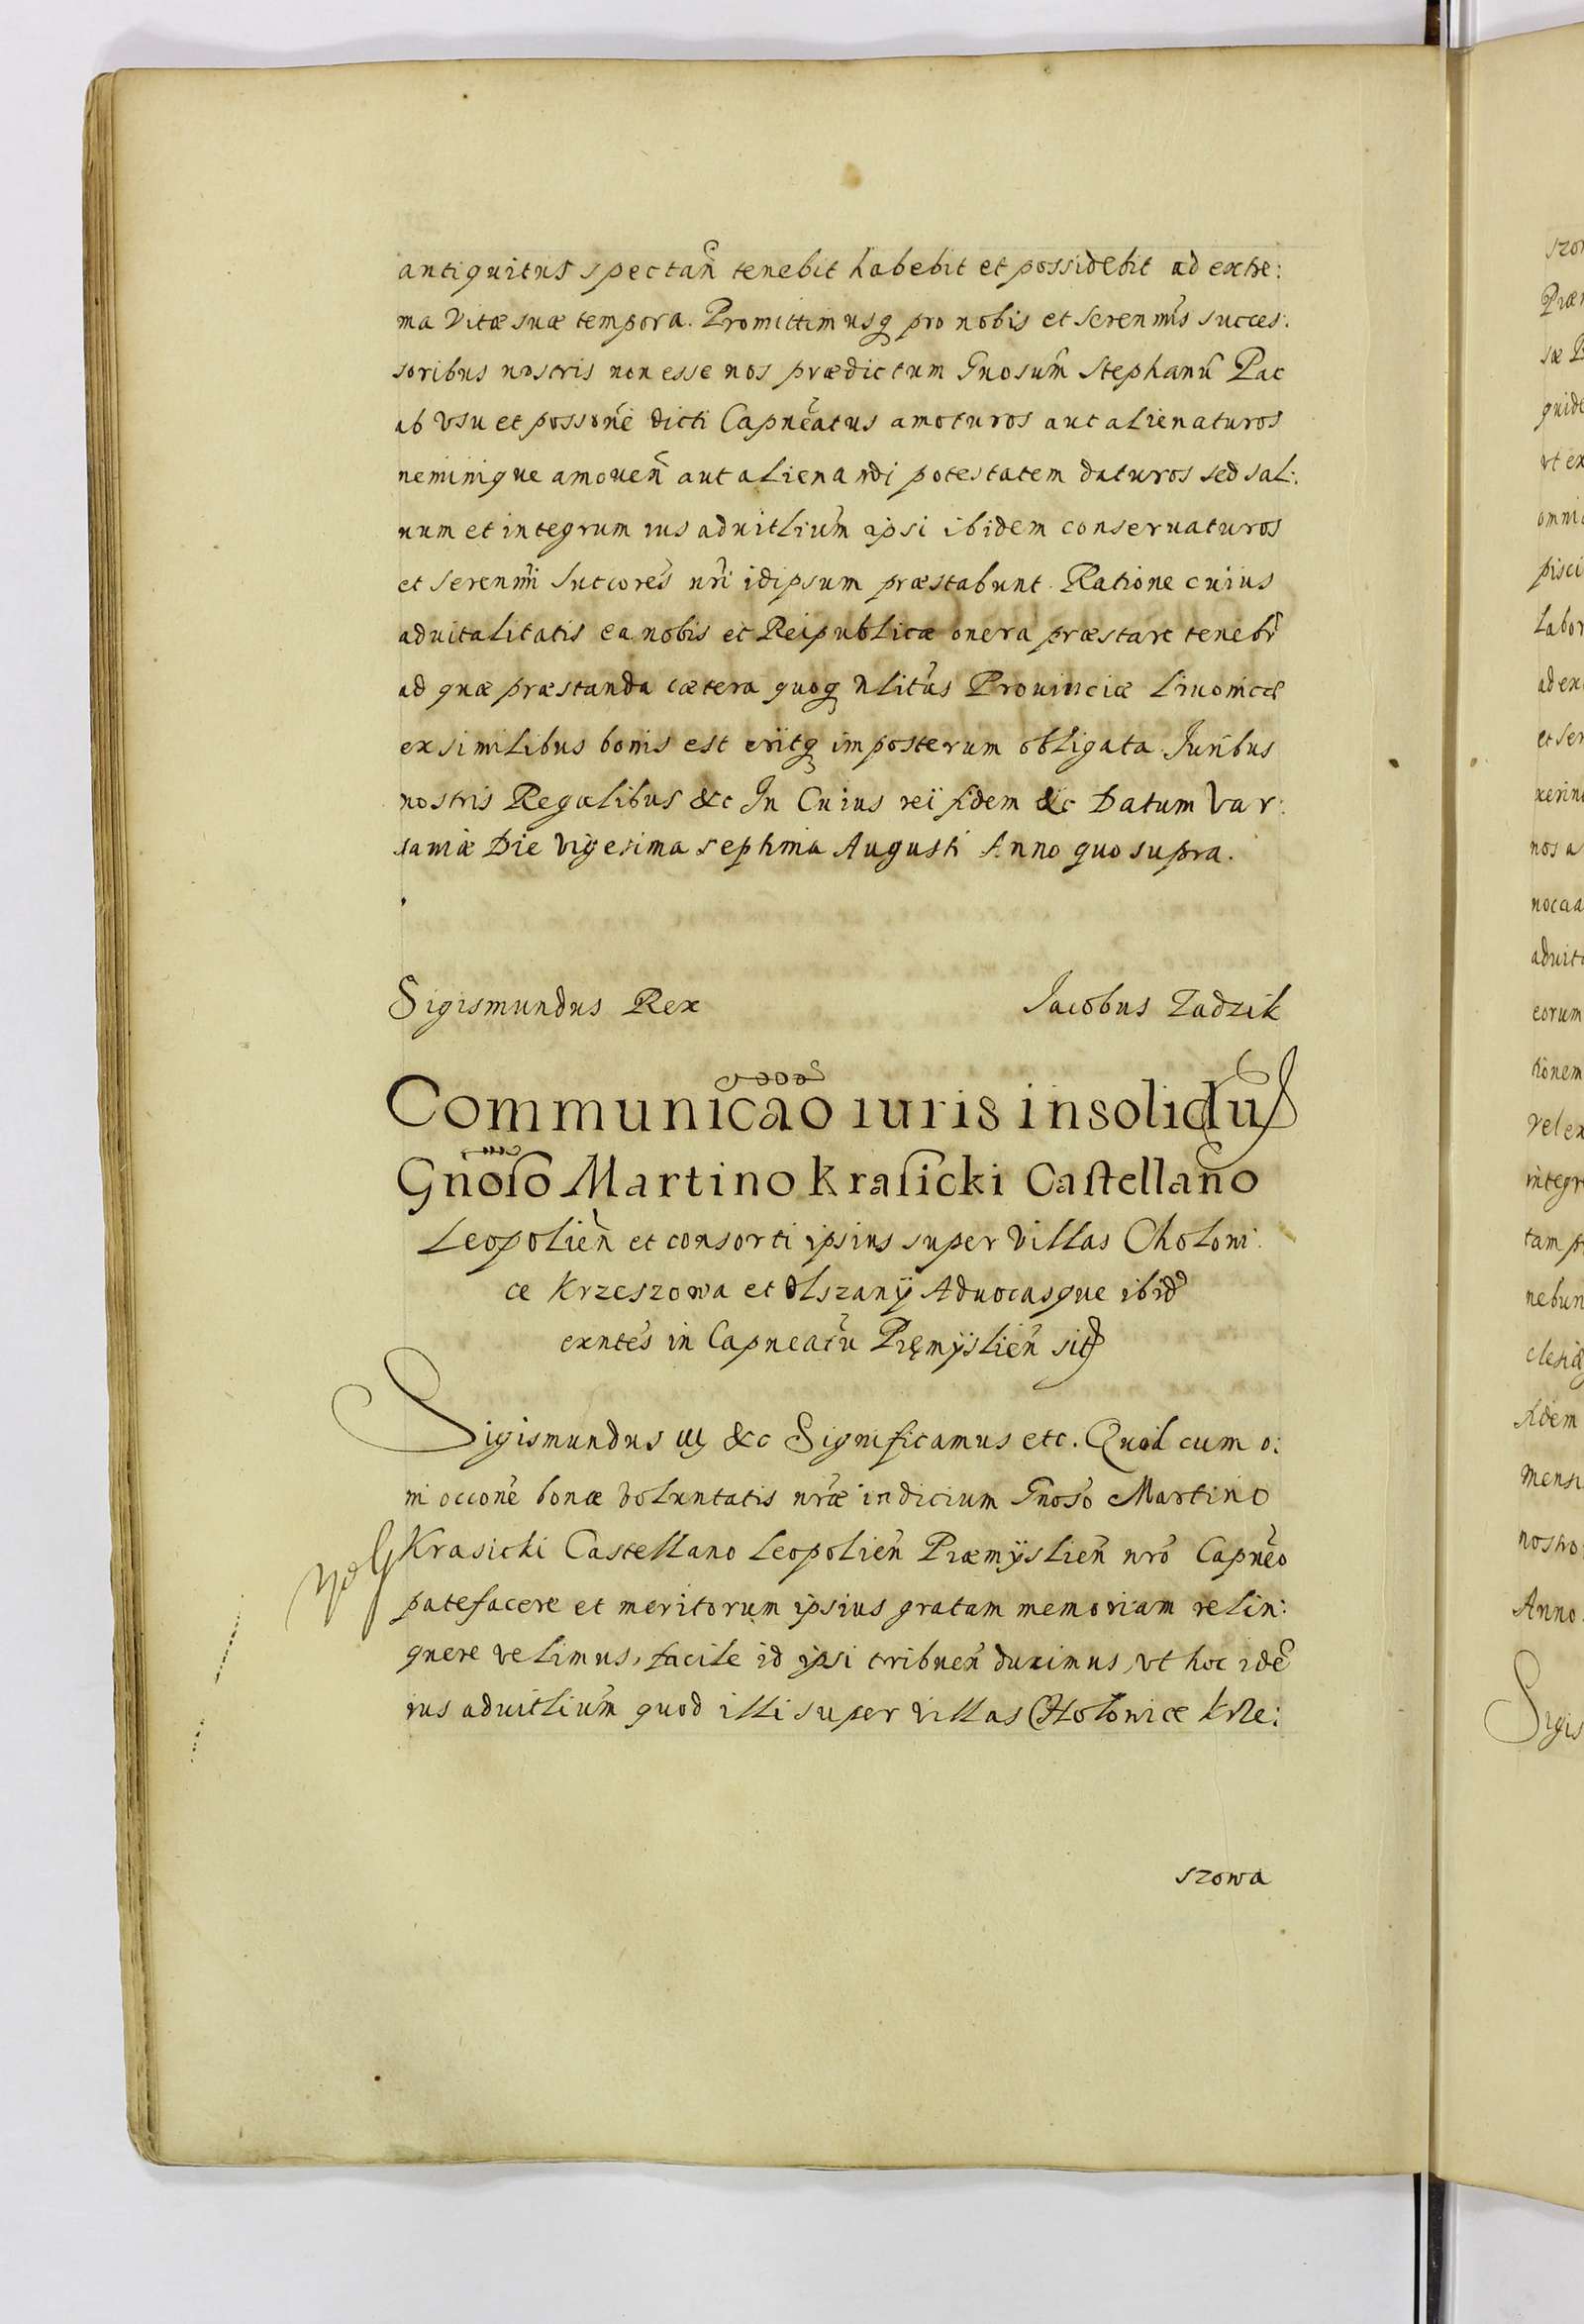 antiquitus spectan̄ tenebit habebit et possidebit ad extre:
ma vitæ suæ tempora. Promittimusq pro nobis et Serenmis succes:
soribus nostris non esse nos prædictum Gnosum̄ Stephanū Pac
ab vsu et possone dicti Capneatus amoturos aut alienaturos
neminique amouen̄ aut alienandi potestatem daturos sed sal:
uum et integrum ius aduitlium̄ ipsi ibidem conseruaturos
et Serenmi Succores nri idipsum præstabunt. Ratione cuius
aduitalitatis ea nobis et Reipublicæ onera præstare tenebr
ad quæ præstanda cætera quoq nlitas Prouinciæ Liuonicæ
ex similibus bonis est eritq imposterum obligata. Juribus
nostris Regalibus &c In Cuius rei fidem &c Datum Var:
sauiæ Die vigesima septima Augusti Anno quo supra.
Sigismundus Rex Jacobus Zadzik
Communicāo iuris insolidū
Gnoso Martino Krasicki Castellano
Leopolien̄ et consorti ipsius super villas Choloni:
ce Krzeszowa et Olszany Aduocasque ibid
exntes in Capneatu Pręmÿslien̄ sit
Sigismundus III &c Significamus etc. Quod cum o:
ni occone bonæ voluntatis nræ indicium Gnoso Martino
Krasicki Castellano Leopolien̄ Præmÿslien̄ nro Capneo
patefacere et meritorum ipsius gratam memoriam relin:
quere velimus, facile id ipsi tribuen̄ duximus, vt hoc idē
ius aduitlium̄ quod illi super villas Cholonice Krze:
szowa